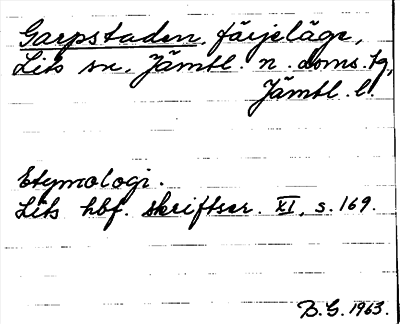 Garpstaden, färjeläge,
Lits sn, Jämtl. n. doms. tg,
Jämtl. l.
Etymologi.
Lits hbf. skriftser. XI, s. 169.
B.G. 1963.